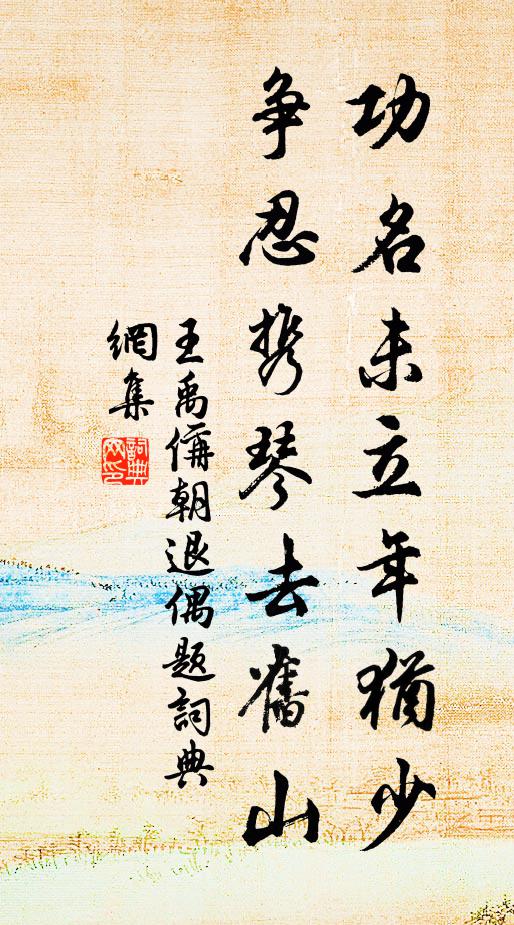 功名未立年猶少
争忍携琴去舊山
王禹偁朝退偶題詞典
網集
詞典
网印